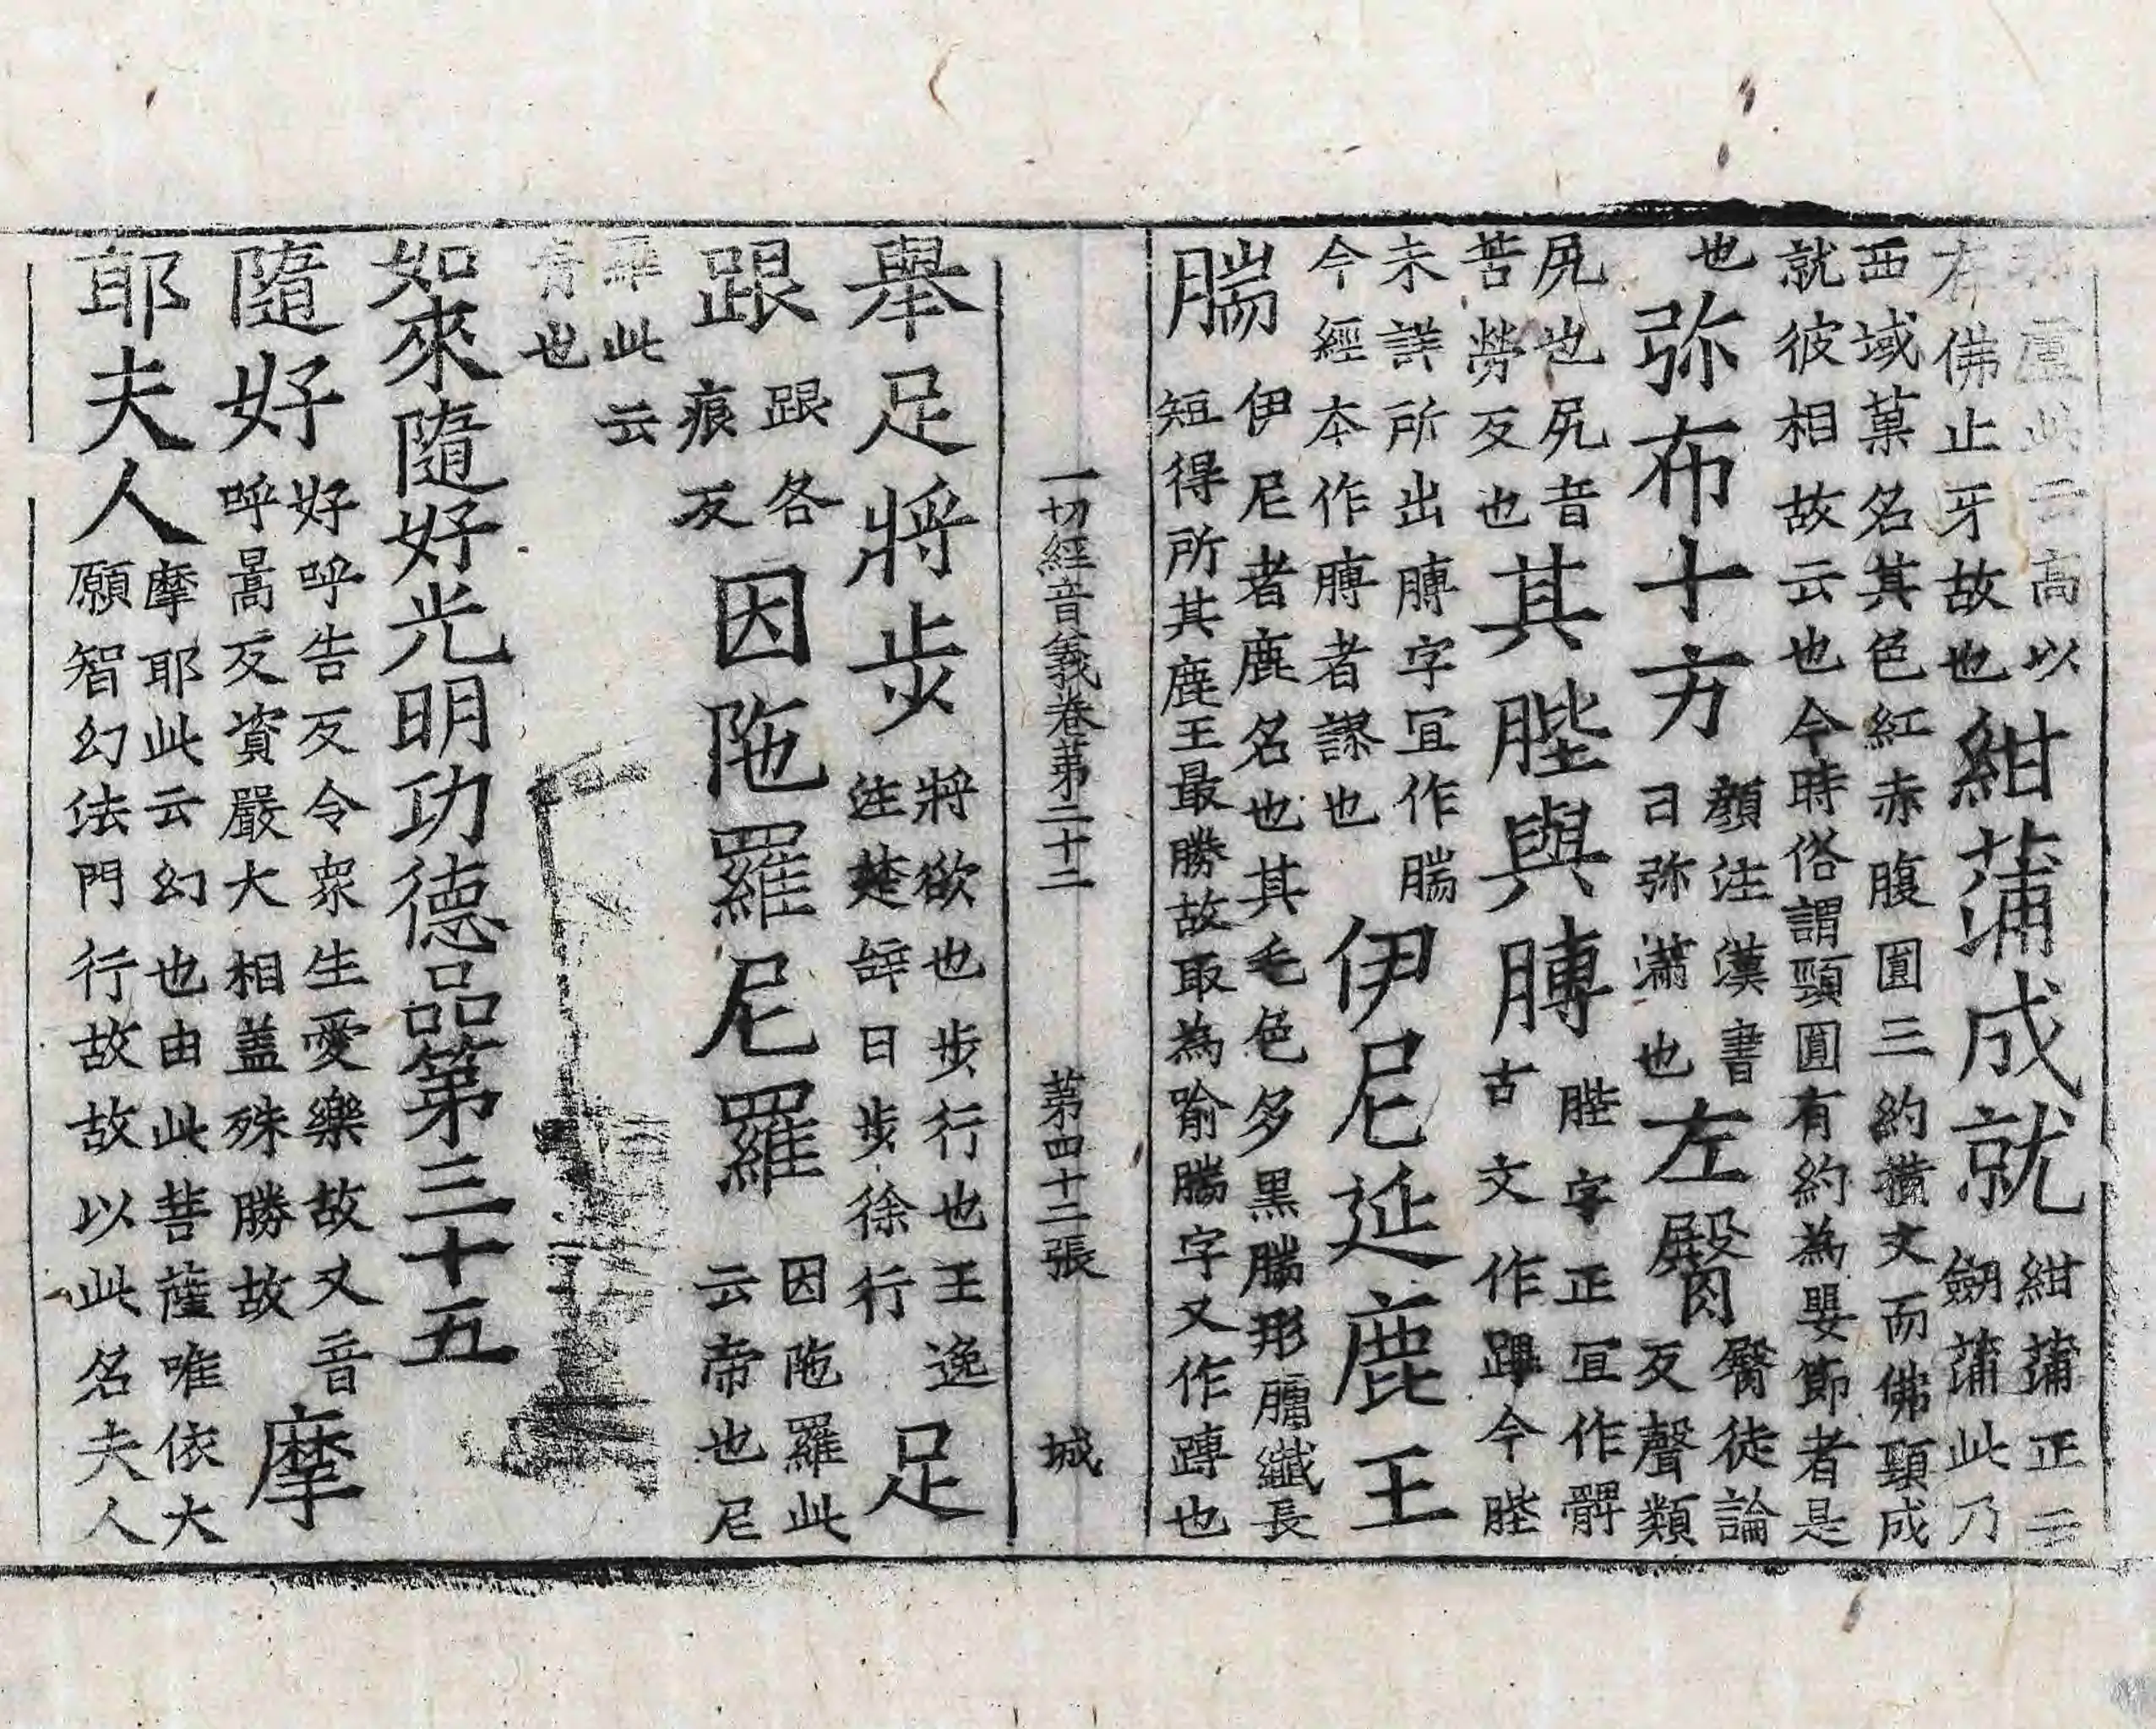 盧此云高以有佛止牙故也紺蒲成就紺蒲正云劒蒲此乃
西域菓名其色紅赤腹圓三約撗文而佛頸成就彼相故云也今時俗謂頸圓有約為嬰節者是
也弥布十方顏注漢書曰弥滿也左臋臋徒論反聲類
尻也尻音苦勞反也其䏶與膊䏶字正宜作髀古文作䠋今䏶
未詳所出膊字宜作腨今經本作膊者謬也伊尼延鹿王
腨伊尼者鹿名也其毛色多黑腨形𦟛纖長短得所其鹿王最勝故取為喻腨字又作𨄔也
一切經音義卷第二十二 第四十二張 城
舉足將步將欲也步行也王逸注楚辝曰步徐行足
跟跟各痕反因陁羅尼羅因陁羅此云帝也尼
羅此云青也
如來隨好光明功德品第三十五
隨好好呼告反令衆生愛樂故又音呼暠反資嚴大相盖殊勝故摩
耶夫人摩耶此云幻也由此菩薩唯依大願智幻法門行故故以此名夫人